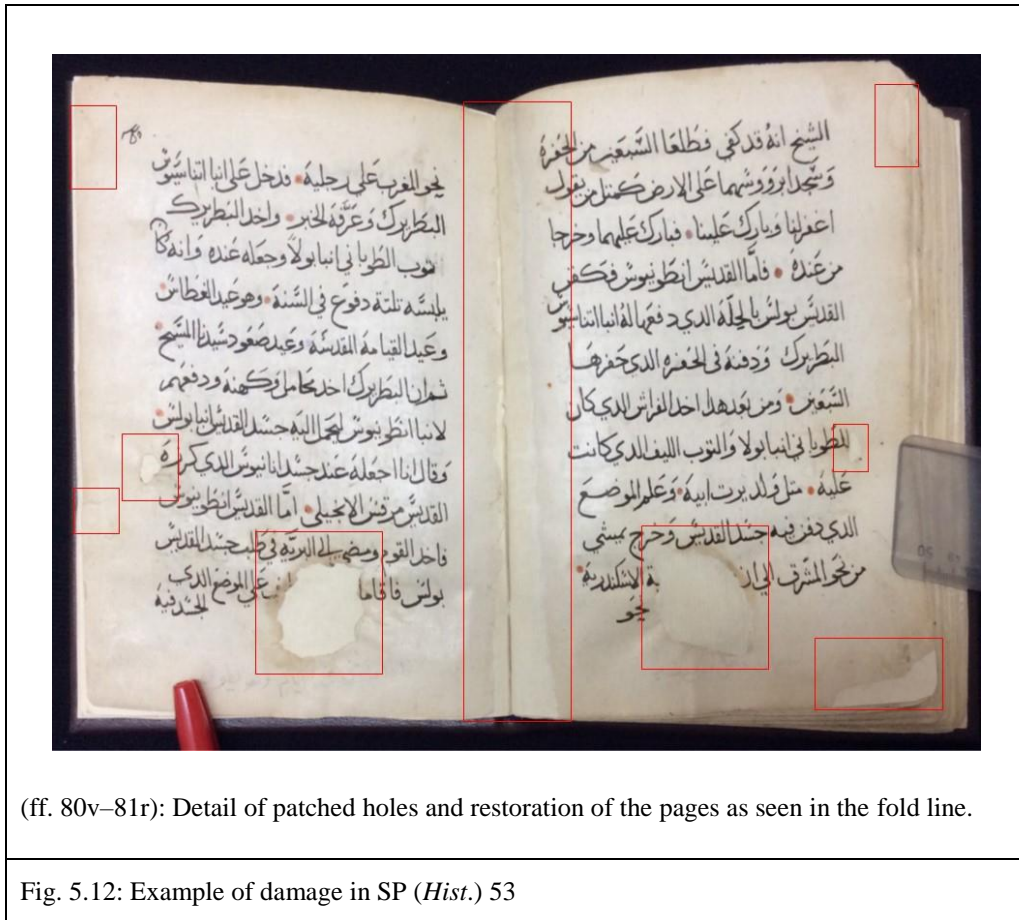 الشيخ انهُ قد كفي فطلعَا السَّبعَين من الحُفرهَ
وَسَجدا بروُوسَهما عَلى الارض كمتل من يقول
اغفر لنا وَبارك عَلينا • فبارك عَليهما وخرجا
من عَندهُ • فامَّا القديسَ انطَونيوسَ فكفن
القديسَ بولسُ بالحلّه الدي دفعَها لهُ انبا اتناسيوسَ
البطَريرك وَدفنهُ في الحفره الدي حَفرهَا
السَّبعَين • ومن بَعد هدا اخد الفراش الدي كان
للطُوباني انبا بولا وَالتوب الليف الدي كانت
عَليهُ • متل وَلد يرت ابيهُ • وَعَلم الموضَع
الدي دفن فيه جسَد القديسَ وَخرج يمشي
من نَحو المشَرق الي الاسكندريهَ
نحو
نحو الغرب عَلي رجليهَ • فدخل عَلي انبا اتناسَيوسَ
البطَريرك وَعَرَّفهَ الخبر • واخد البَطريرك
توب الطُوباني انبا بولا وجعله عَنده وَانه كا
يلبسَه تلتة دفوع في السَّنهَ • وهو عَيد الغطَاسَ
وعَيد القيامهَ المقدسَّهَ وعَيد صَعَود سَيدنا المسَيح
ثم ان البطَريرك اخد محَامل وَكهنهَ ودفعَهم
لانبا انطَونيوسَ ليحَمل اليهَ جسَد القديسَ انبا بولسَ
وَقال انا اجعلهَ عَند جسَد الدي كرزهَ
القديسَ مرقسَ الانجيلي • امَّا القديسَ انطَونيوسَ
فاخد القوم ومضي الي البريَّه في طلب جسَد القديسَ
بولسَ فاقاما عَلي الموضَع الدي
الجسَد فيهَ
(ff. 80v–81r): Detail of patched holes and restoration of the pages as seen in the fold line.
Fig. 5.12: Example of damage in SP (Hist.) 53